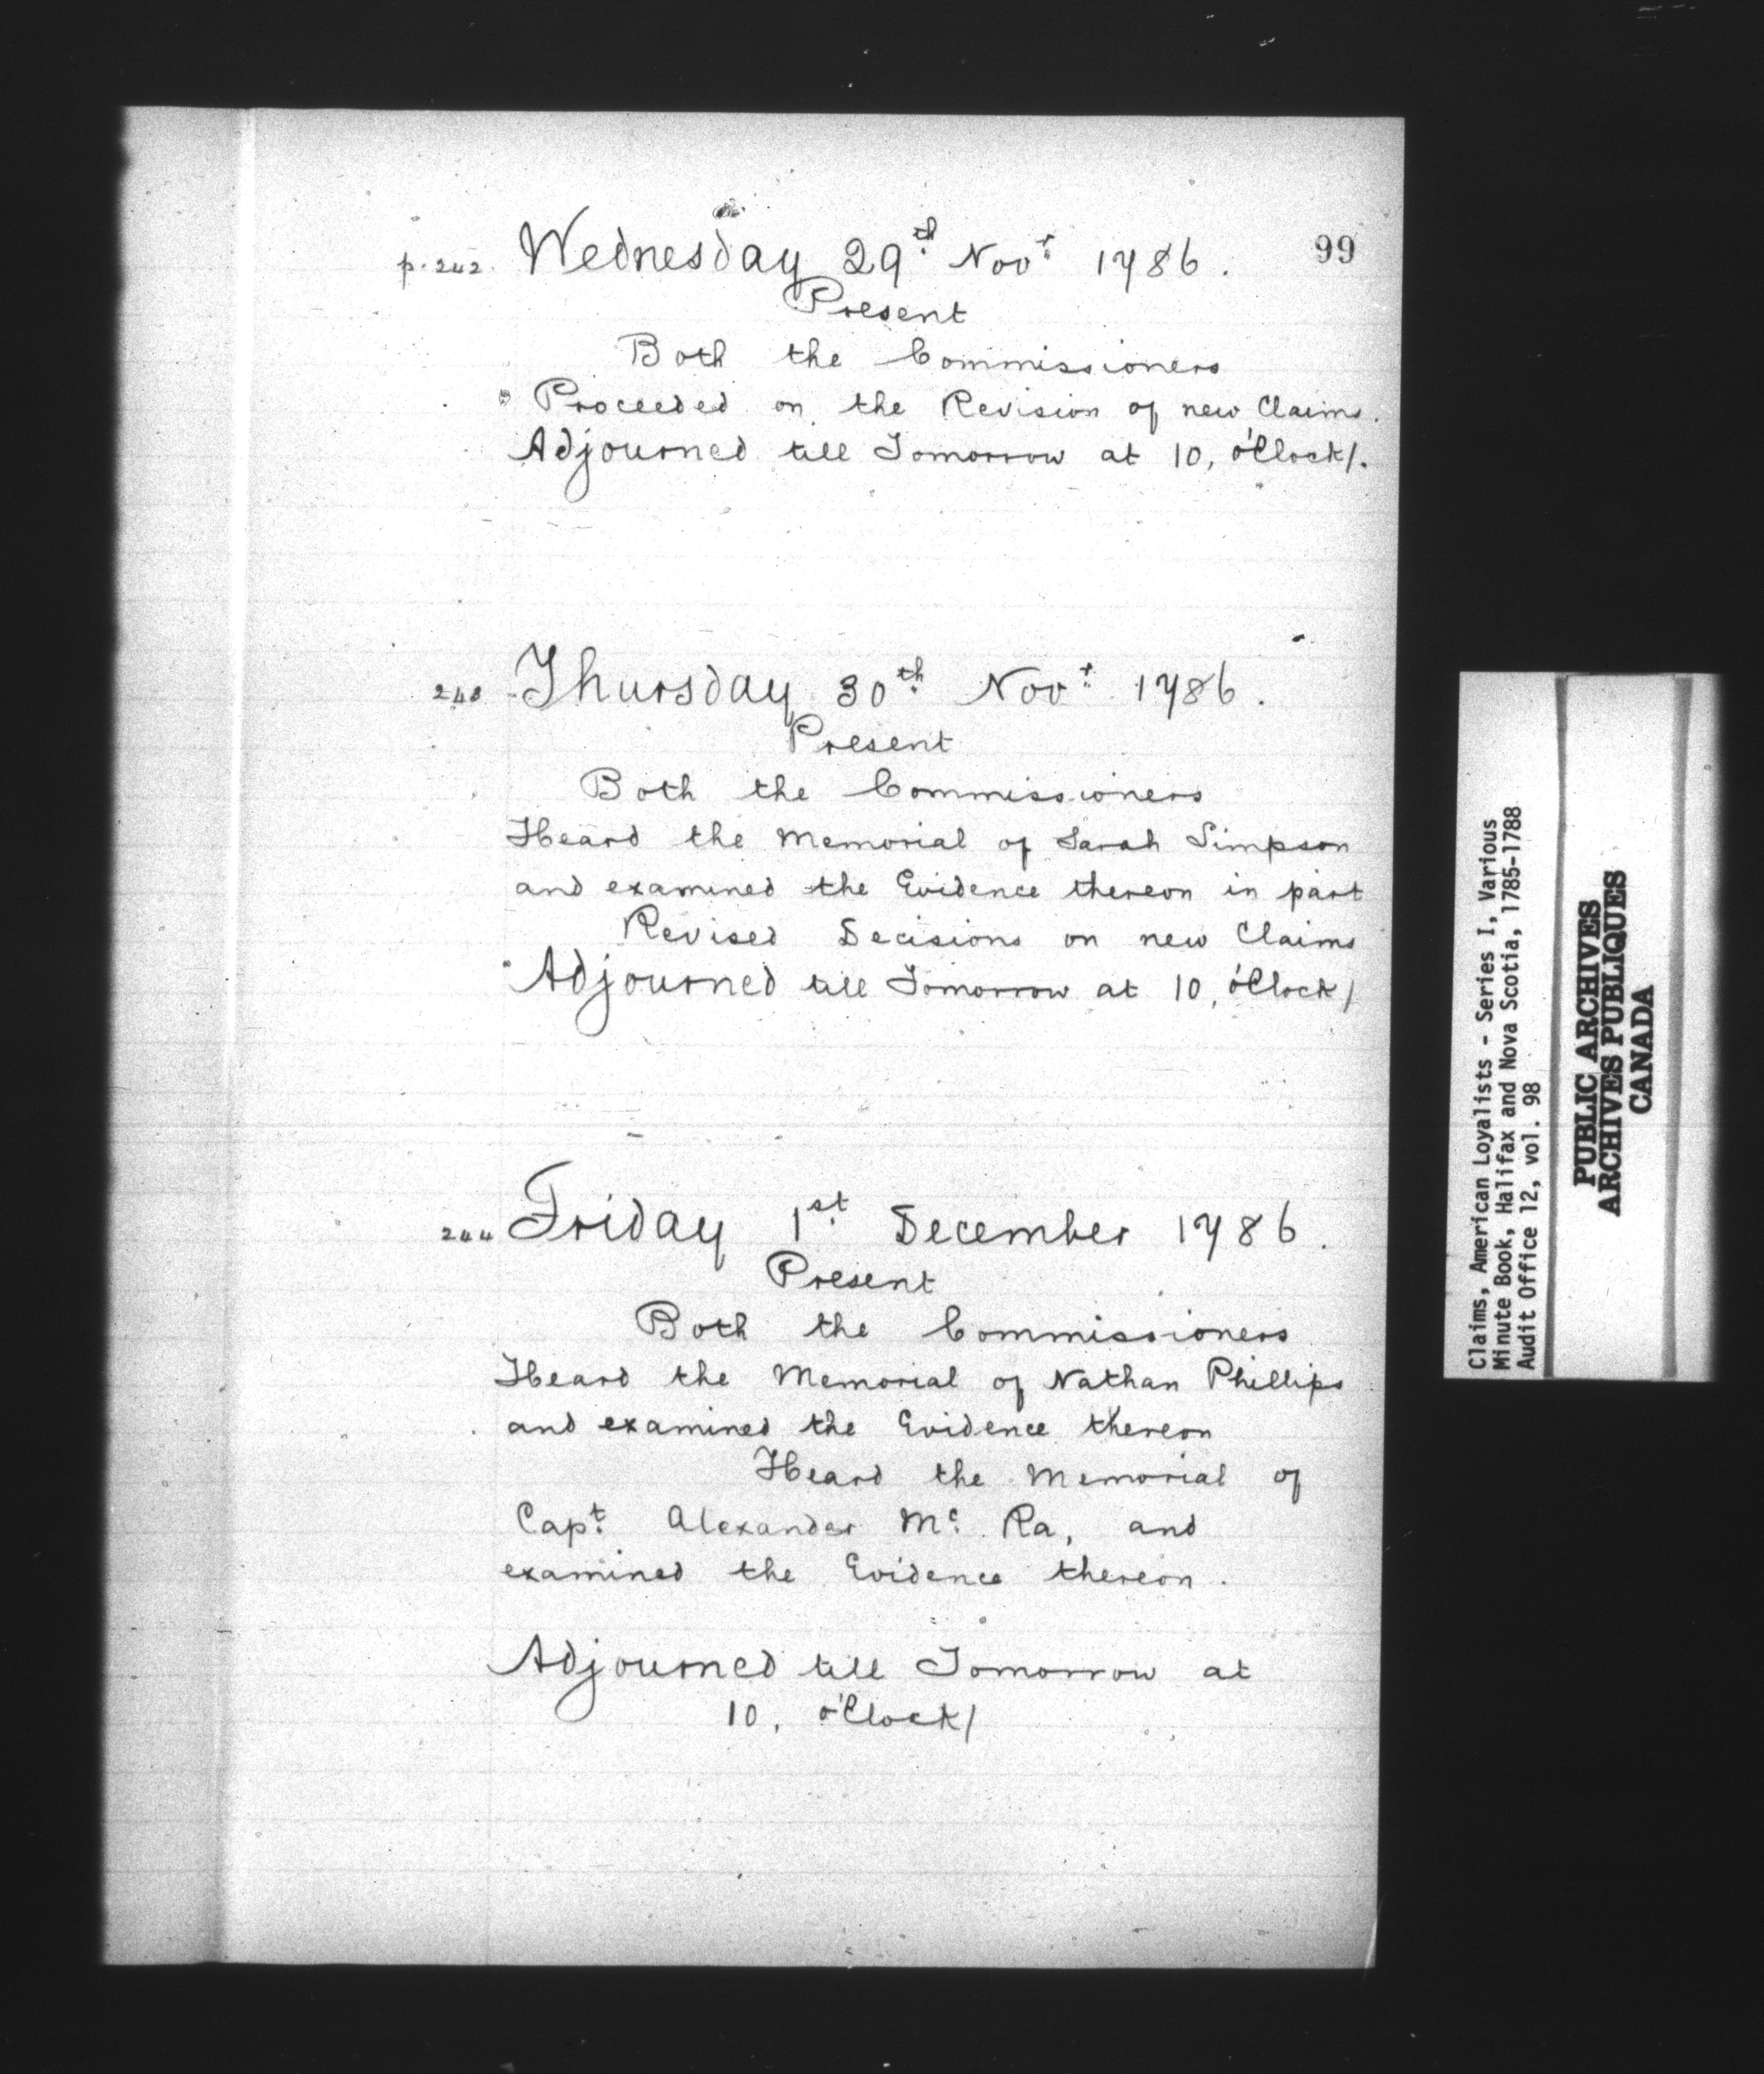 99
p. 242. Wednesday 29th Novr 1786.
Present
Both the Commissioners
Proceeded on the Revision of new Claims.
Adjourned till Tomorrow at 10, o'Clock/.
243 Thursday 30th Novr 1786.
Present
Both the Commissioners
Heard the Memorial of Sarah Simpson
and examined the Evidence thereon in part
Revised Decisions on new Claims
Adjourned till Tomorrow at 10, o'Clock/
244 Friday 1st December 1786.
Present
Both the Commissioners
Heard the Memorial of Nathan Phillips
and examined the Evidence thereon
Heard the Memorial of
Capt. Alexander Mc. Ra, and
examined the Evidence thereon.
Adjourned till Tomorrow at
10, o'Clock/
Claims, American Loyalists - Series I, Various
Minute Book, Halifax and Nova Scotia, 1785-1788
Audit Office 12, vol. 98
PUBLIC ARCHIVES
ARCHIVES PUBLIQUES
CANADA